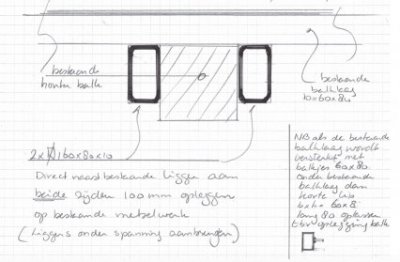 bestaande
houten balk
bestaande
balklaag
2x 160x80x10
Direct naast bestaande liggen aan
beide zijden 100mm opleggen
op bestaande metselwerk
(liggers onder spanning aanbrengen)
NB als de bestaande
balklaag wordt
versterkt met
balkjes 60x80
onder bestaande
balklaag dan
korte
lang 80 oplassen
tbv oplegging balk